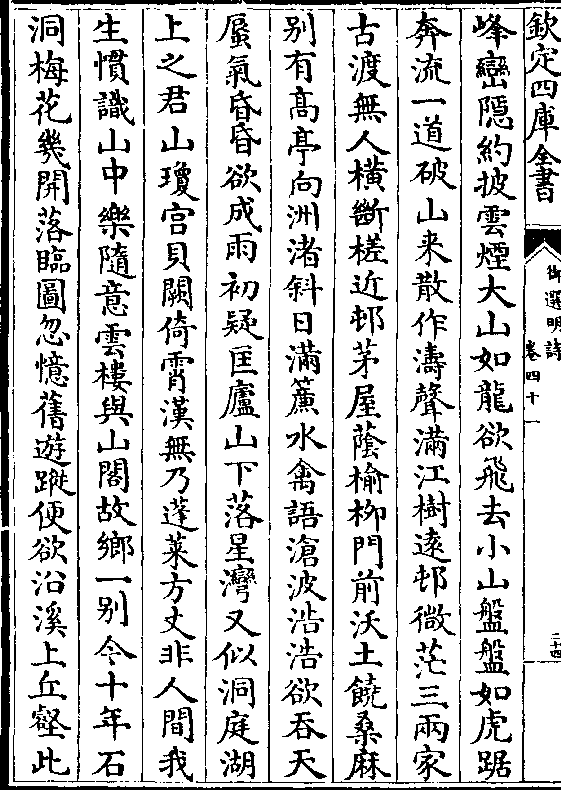 欽定四庫全書
御選明詩
卷四十一
二十四
峰巒隠約披雲煙大山如龍欲飛去小山盤盤如虎踞
奔流一道破山来散作濤聲滿江樹逺邨微茫三兩家
古渡無人横斷槎近邨茅屋蔭榆柳門前沃土饒桑麻
别有髙亭向洲渚斜日滿簾水禽語滄波浩浩欲吞天
蜃氣昏昏欲成雨初疑匡廬山下落星灣又似洞庭湖
上之君山瓊宫貝闕倚霄漢無乃蓬萊方丈非人間我
生慣識山中樂隨意雲樓與山閣故鄉一别今十年石
洞梅花幾開落臨圖忽憶舊遊蹤便欲沿溪上丘壑此